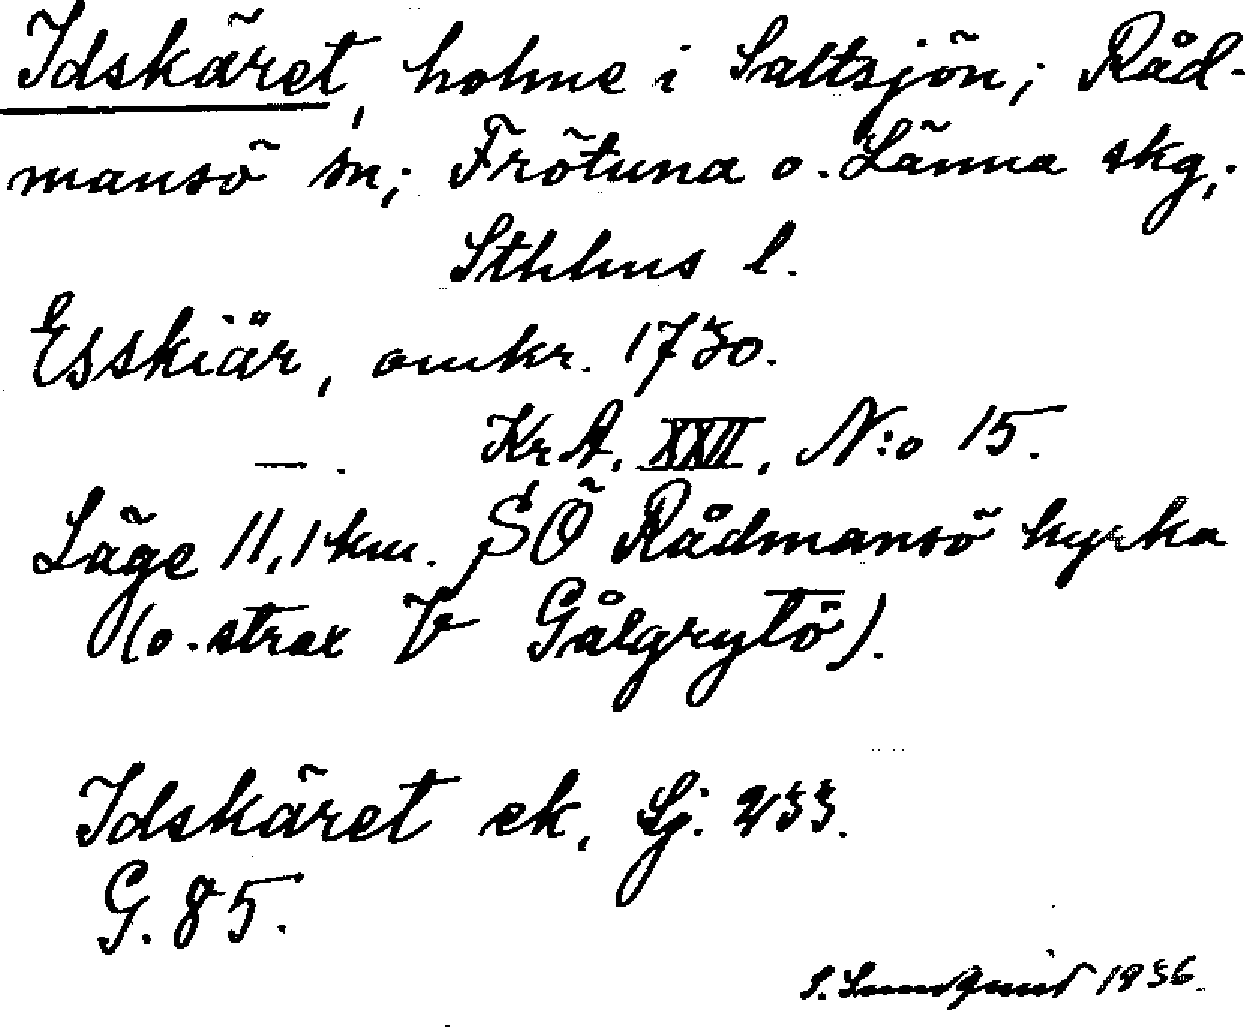 Idskäret, holme i Saltsjön; Råd-
mansö sn; Frötuna o. Länna skg,;
Sthlms l.
Esskiär, omkr. 1730.
— . KrA. XXVI, N:o 15.
Läge 11,1 km. SÖ Rådmansö kyrka
(o. strax V Gålgrytö).
Idskäret ek, Sj. 233.
G. 85.
S. Lundquist 1936.